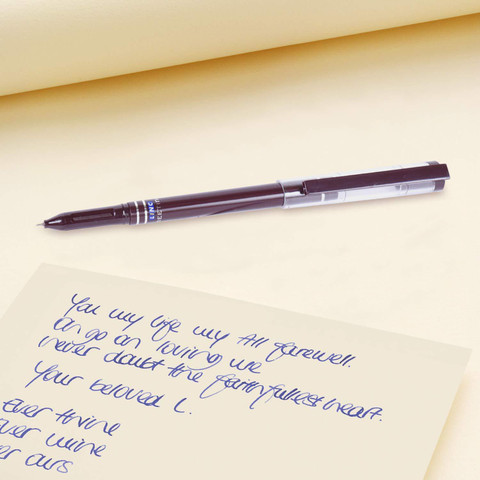 You my life my All farewell.
On go on loving me
never doubt the faithfullest heart.
Your beloved L.
Ever thine
ever mine
er ours